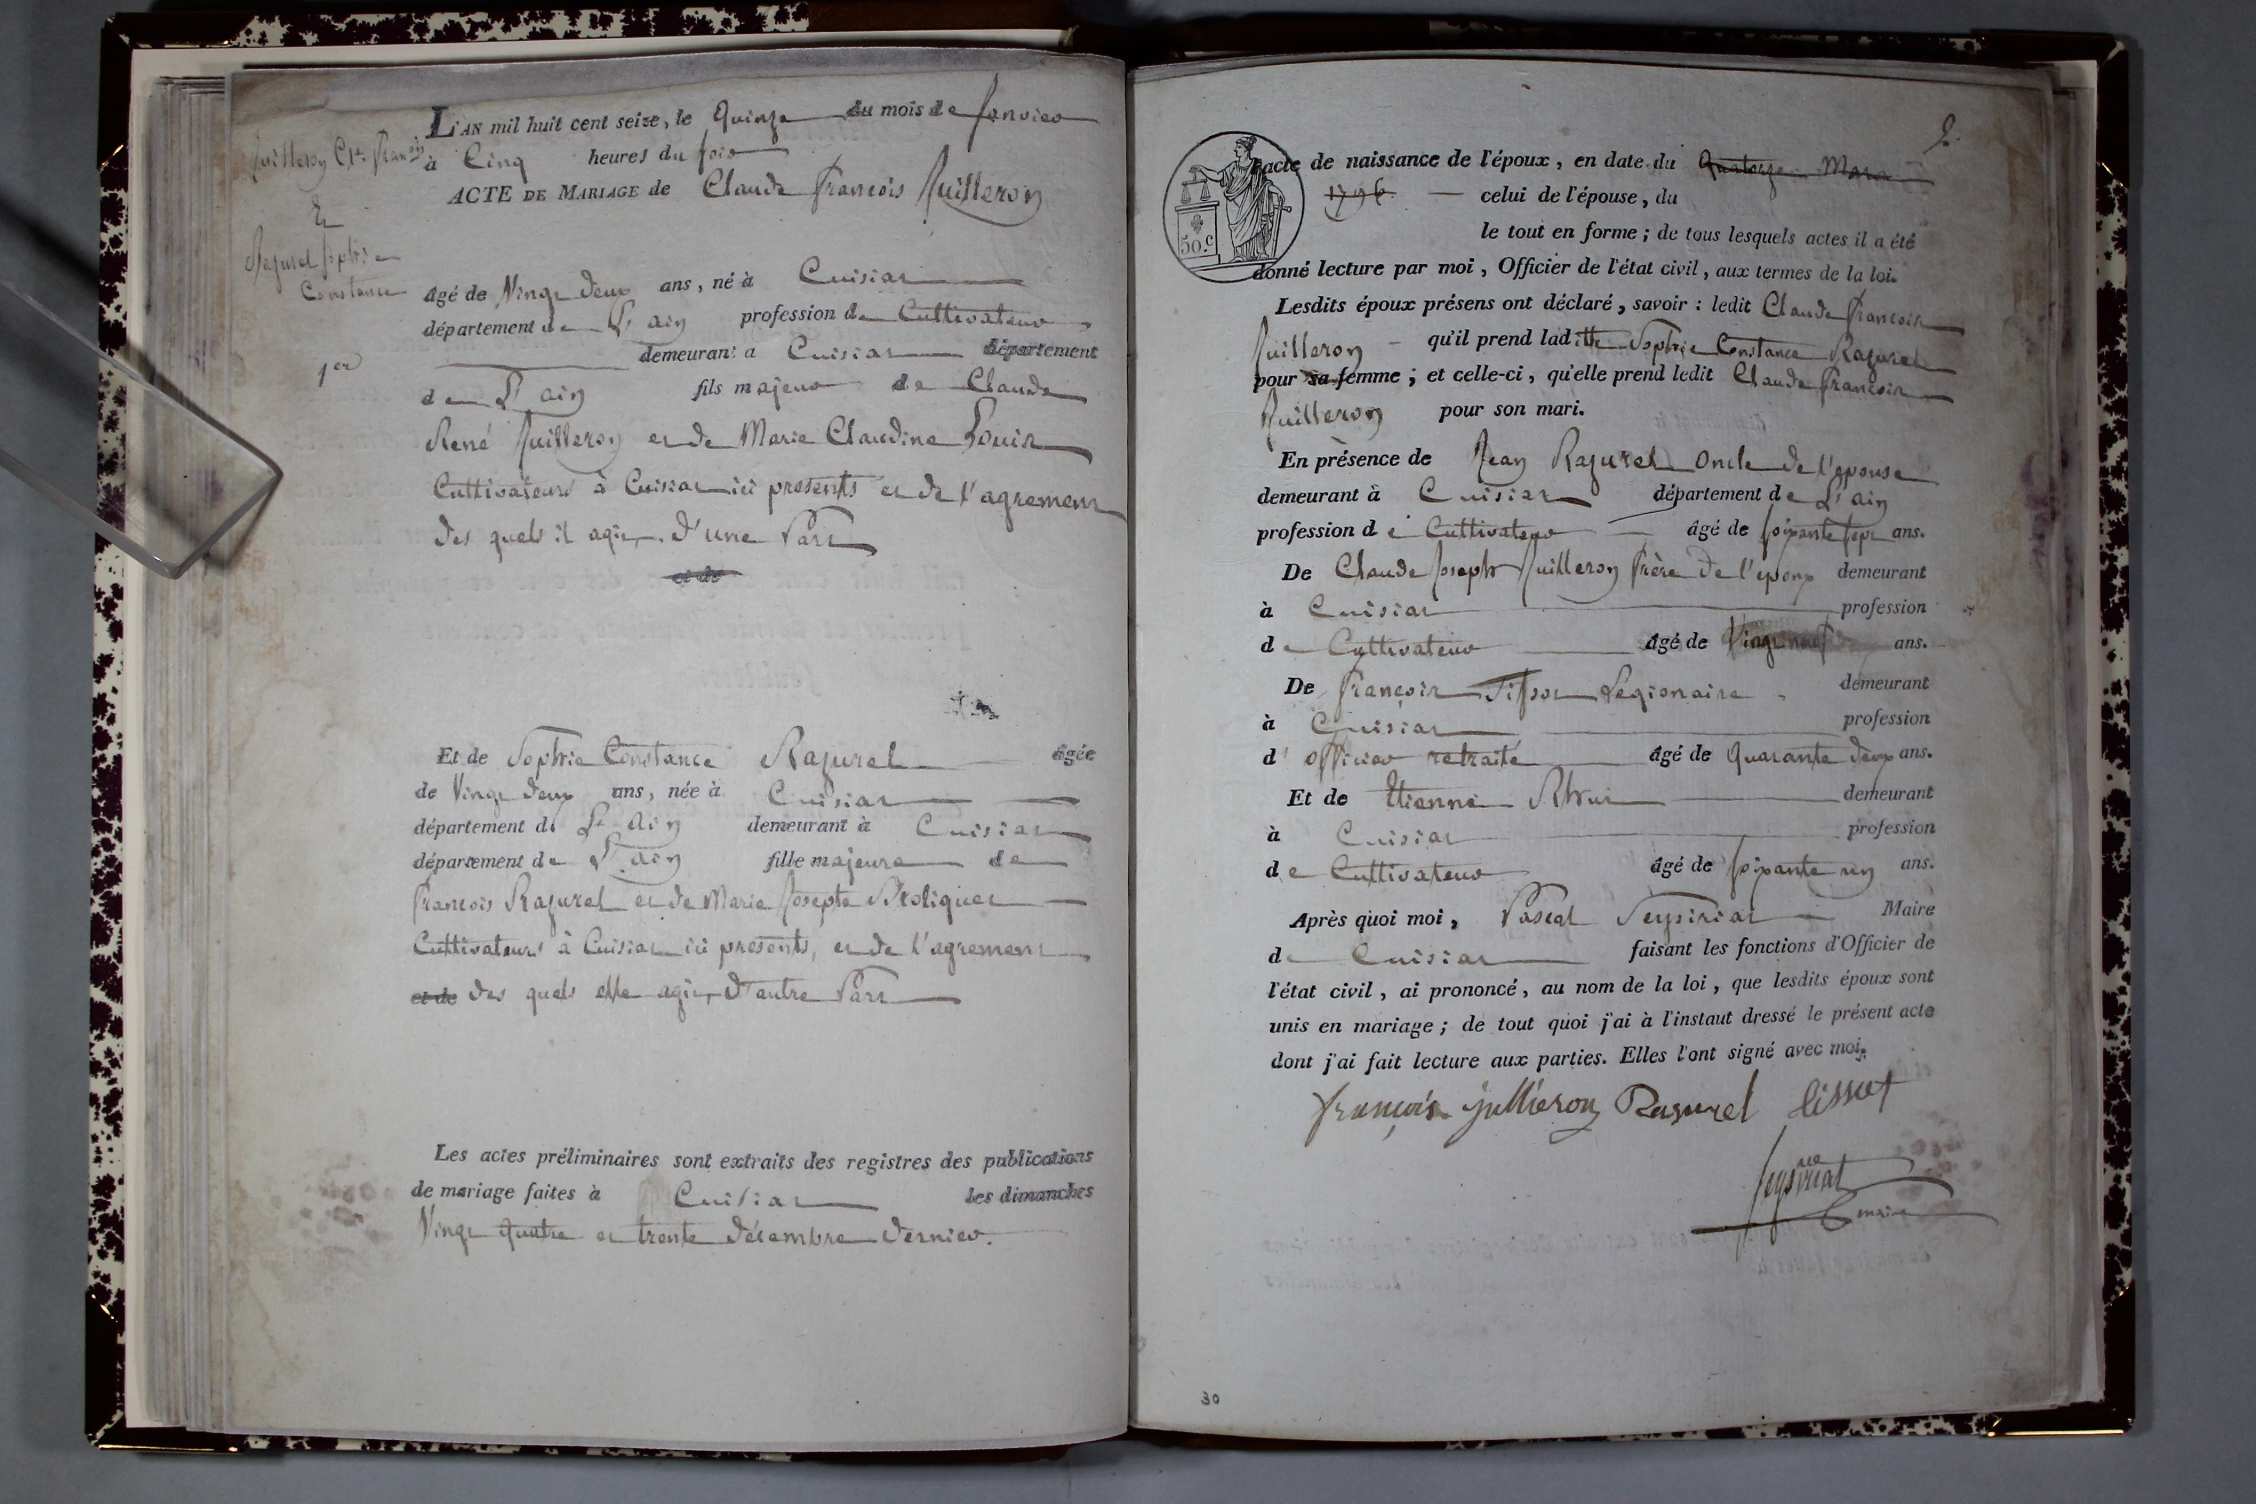 L'AN mil huit cent seize, le Quinze du mois de Janvier
Juilleron Cde. François à Cinq heures du soir
ACTE DE MARIAGE de Claude François Juilleron
Et
Razurel Sophie
Constance
âgé de Vingt deux ans, né à Cuisiat
département de L'ain profession de Cultivateur
1er
demeurant à Cuisiat département
de L'ain fils majeur de Claude
René Juilleron et de Marie Claudine Louis
Cultivateurs à Cuisiat ici presents et de l'agrement
des quels il agit, d'une Part
et de
Et de Sophie Constance Razurel âgée
de Vingt deux ans, née à Cuisiat
département de L'ain demeurant à Cuisiat
département de L'ain fille majeure de
François Razurel et de Marie Josepte
Cultivateurs à Cuisiat ici presents, et de l'agrement
et de des quels elle agit, d'autre Part
Les actes préliminaires sont extraits des registres des publications
de mariage faites à Cuisiat les dimanches
Vingt Quatre et trente décembre dernier.
2.
50.c
acte de naissance de l'époux, en date du Quatorze Mars
1796 celui de l'épouse, du
le tout en forme; de tous lesquels actes il a été
donné lecture par moi, Officier de l'état civil, aux termes de la loi.
Lesdits époux présens ont déclaré, savoir : ledit Claude François
Juilleron qu'il prend laditte Sophie Constance Razurel
pour sa femme; et celle-ci, qu'elle prend ledit Claude François
Juilleron pour son mari.
En présence de Jean Razurel Oncle de l'epouse
demeurant à Cuisiat département de L'ain
profession de Cultivateur âgé de soixante sept ans.
De Claude Joseph Juilleron frère de l'epoux demeurant
à Cuisiat profession
de Cultivateur âgé de Vingt neuf ans.
De François Tissot Legionaire demeurant
à Cuisiat profession
d'officier retraité âgé de Quarante deux ans.
Et de Etienne demeurant
à Cuisiat profession
de Cultivateur âgé de soixante un ans.
Après quoi moi, Pascal Seysiriat Maire
de Cuisiat faisant les fonctions d'Officier de
l'état civil, ai prononcé, au nom de la loi, que lesdits époux sont
unis en mariage; de tout quoi j'ai à l'instaut dressé le présent acte
dont j'ai fait lecture aux parties. Elles l'ont signé avec moi.
françois juilleron Razurel tissot
Seysiriat
maire
30